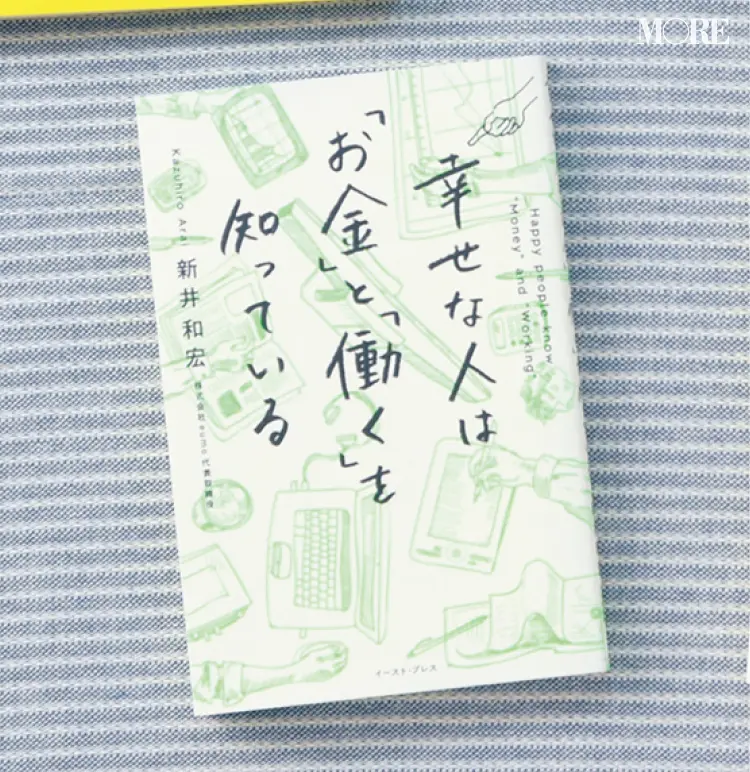 MORE
幸せな人は
「お金」と「働く」を
知っている
Happy people know
"Money" and "Working"
Kazuhiro Arai
新井和宏
株式会社eumo代表取締役
イースト・プレス